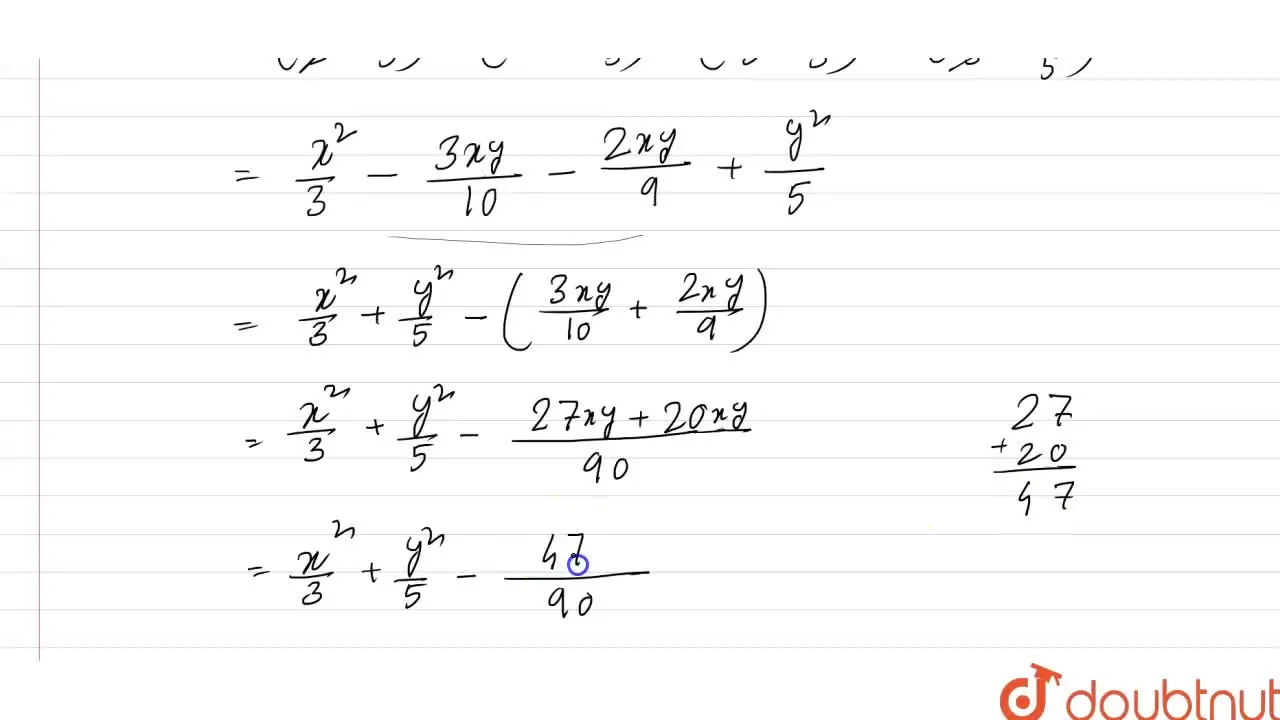 = x²/3 - 3xy/10 - 2xy/9 + y²/5
= x²/3 + y²/5 - (3xy/10 + 2xy/9)
= x²/3 + y²/5 - 27xy + 20xy/90
27
+ 20
47
= x²/3 + y²/5 - 47/90
doubtnut